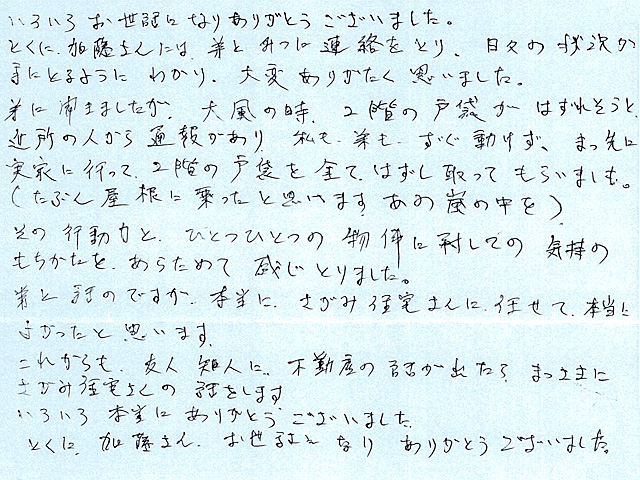 いろいろお世話になりありがとうございました。
とくに、加藤さんには、弟とみつに連絡をとり、日々の状況が
手にとるように わかり、大変ありがたく思いました。
弟に聞きましたが、大風の時、2階の戸袋がはずれそうと、
近所の人から通報があり 私も、弟も、すぐ動けず、まっ先に
実家に行って、2階の戸袋を全て、はずし取ってもらいました。
(たぶん屋根に乗ったと思います あの嵐の中を)
その行動力と、ひとつひとつの物件に対しての 気持の
もちかたを、あらためて 感じとりました。
弟と話のですが、本当に、さがみ住宅さんに、任せて、本当に
よかったと思います。
これからも、友人 知人に、不動産の話が出たら まっさきに
さがみ住宅さんの 話をします
いろいろ 本当に ありがとうございました。
とくに、加藤さん、お世話に なり ありがとうございました。